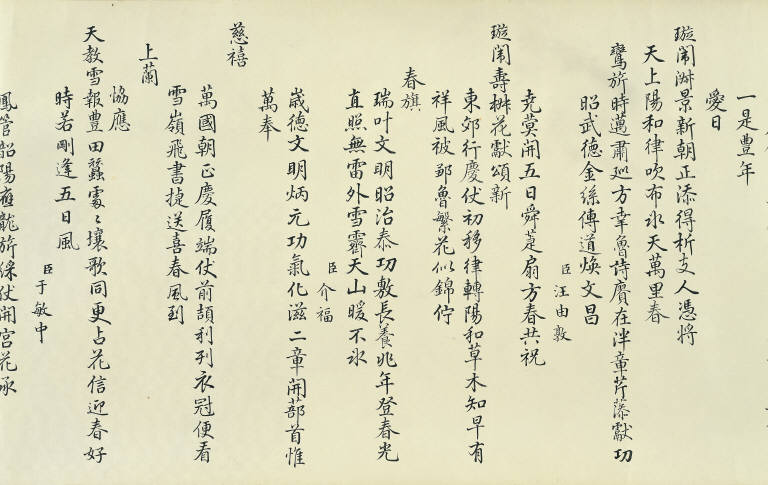 一是豊年
愛日
璇閨淑景新朝正添得析支人憑將
天上陽和律吹布氷天萬里春
鸞旂時邁肅廵方幸魯詩賡在泮章芹藻獻功
昭武德金絲傳道煥文昌
臣汪由敦
堯蓂開五日舜萐扇方春共祝
璇閨壽椒花獻頌新
東郊行慶仗初移律轉陽和草木知早有
祥風被鄒魯繁花似錦佇
春旗
瑞叶文明昭治泰功敷長養兆年登春光
直照無雷外雪霽天山暖不氷
臣介福
嵗德文明炳元功氣化滋二章開蔀首惟
萬奉
慈禧
萬國朝正慶履端仗前頡利列衣冠便看
雪嶺飛書捷送喜春風到
上蘭
恊應
天教雪報豊田蠶處〻壤歌同更占花信迎春好
時若剛逢五日風
臣于敏中
鳳管韶陽應龍旂綵仗開宮花承